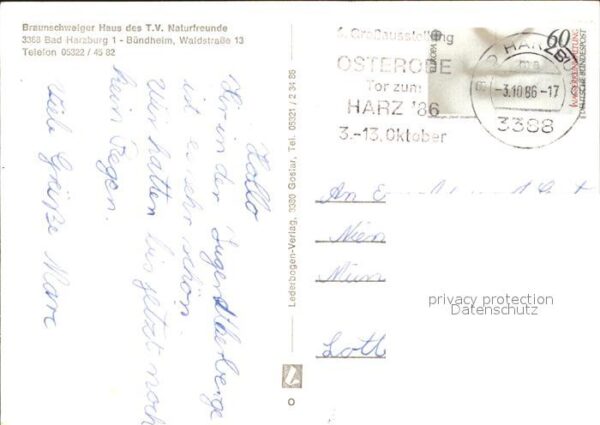 Braunschweiger Haus des T.V. Naturfreunde
3388 Bad Harzburg 1 - Bündheim, Waldstraße 13
Telefon 05322 / 45 82
Hallo
Hier in der Jugendherberge
ist es sehr schön.
Wir hatten bis jetzt noch
kein Regen.
Viele Grüße Marc
Lederbogen-Verlag, 3380 Goslar, Tel. 05321 / 2 34 86
Großausstellung
OSTERODE
Tor zum
HARZ '86
3.-13. Oktober
-3.10.86-17
3388
60
EUROPA
DEUTSCHE BUNDESPOST
An
privacy protection
Datenschutz